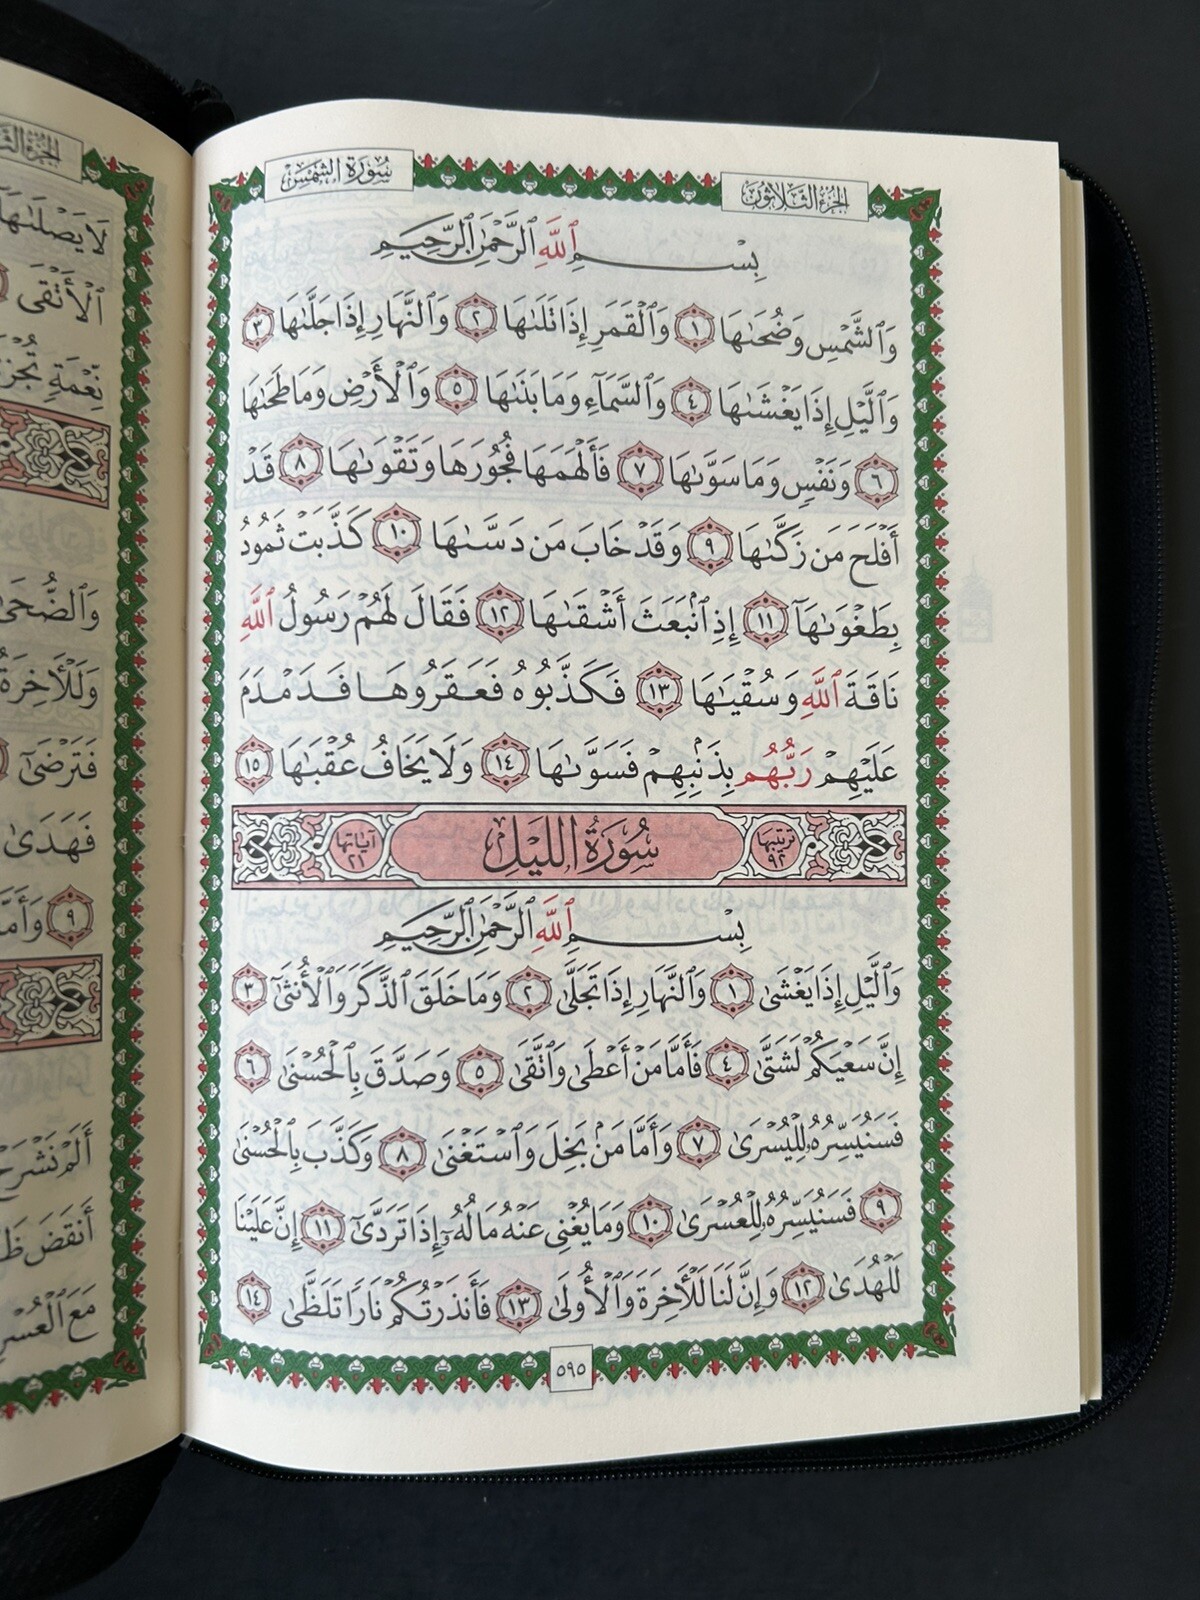 الجزء الثلاثون
سورة الشمس
بِسْمِ ٱللَّهِ ٱلرَّحْمَٰنِ ٱلرَّحِيمِ
وَٱلشَّمْسِ وَضُحَىٰهَا ١ وَٱلْقَمَرِ إِذَا تَلَىٰهَا ٢ وَٱلنَّهَارِ إِذَا جَلَّىٰهَا ٣
وَٱلَّيْلِ إِذَا يَغْشَىٰهَا ٤ وَٱلسَّمَآءِ وَمَا بَنَىٰهَا ٥ وَٱلْأَرْضِ وَمَا طَحَىٰهَا
٦ وَنَفْسٍ وَمَا سَوَّىٰهَا ٧ فَأَلْهَمَهَا فُجُورَهَا وَتَقْوَىٰهَا ٨ قَدْ
أَفْلَحَ مَن زَكَّىٰهَا ٩ وَقَدْ خَابَ مَن دَسَّىٰهَا ١٠ كَذَّبَتْ ثَمُودُ
بِطَغْوَىٰهَآ ١١ إِذِ ٱنۢبَعَثَ أَشْقَىٰهَا ١٢ فَقَالَ لَهُمْ رَسُولُ ٱللَّهِ
نَاقَةَ ٱللَّهِ وَسُقْيَٰهَا ١٣ فَكَذَّبُوهُ فَعَقَرُوهَا فَدَمْدَمَ
عَلَيْهِمْ رَبُّهُم بِذَنۢبِهِمْ فَسَوَّىٰهَا ١٤ وَلَا يَخَافُ عُقْبَٰهَا ١٥
ترتيبها ٩٢ سُورَةُ اللَّيْلِ آياتها ٢١
بِسْمِ ٱللَّهِ ٱلرَّحْمَٰنِ ٱلرَّحِيمِ
وَٱلَّيْلِ إِذَا يَغْشَىٰ ١ وَٱلنَّهَارِ إِذَا تَجَلَّىٰ ٢ وَمَا خَلَقَ ٱلذَّكَرَ وَٱلْأُنثَىٰٓ ٣
إِنَّ سَعْيَكُمْ لَشَتَّىٰ ٤ فَأَمَّا مَنْ أَعْطَىٰ وَٱتَّقَىٰ ٥ وَصَدَّقَ بِٱلْحُسْنَىٰ ٦
فَسَنُيَسِّرُهُۥ لِلْيُسْرَىٰ ٧ وَأَمَّا مَنۢ بَخِلَ وَٱسْتَغْنَىٰ ٨ وَكَذَّبَ بِٱلْحُسْنَىٰ
٩ فَسَنُيَسِّرُهُۥ لِلْعُسْرَىٰ ١٠ وَمَا يُغْنِى عَنْهُ مَالُهُۥٓ إِذَا تَرَدَّىٰٓ ١١ إِنَّ عَلَيْنَا
لَلْهُدَىٰ ١٢ وَإِنَّ لَنَا لَلْأَخِرَةَ وَٱلْأُولَىٰ ١٣ فَأَنذَرْتُكُمْ نَارًا تَلَظَّىٰ ١٤
٥٩٥
لَا يَصْلَىٰهَا
ٱلْأَتْقَى
نِّعْمَةٍ
وَٱلضُّحَىٰ
وَلَلْأَخِرَةُ
فَتَرْضَىٰٓ
فَهَدَىٰ
٩ وَأَمَّا
أَلَمْ نَشْرَحْ
أَنقَضَ
مَعَ ٱلْعُسْرِ